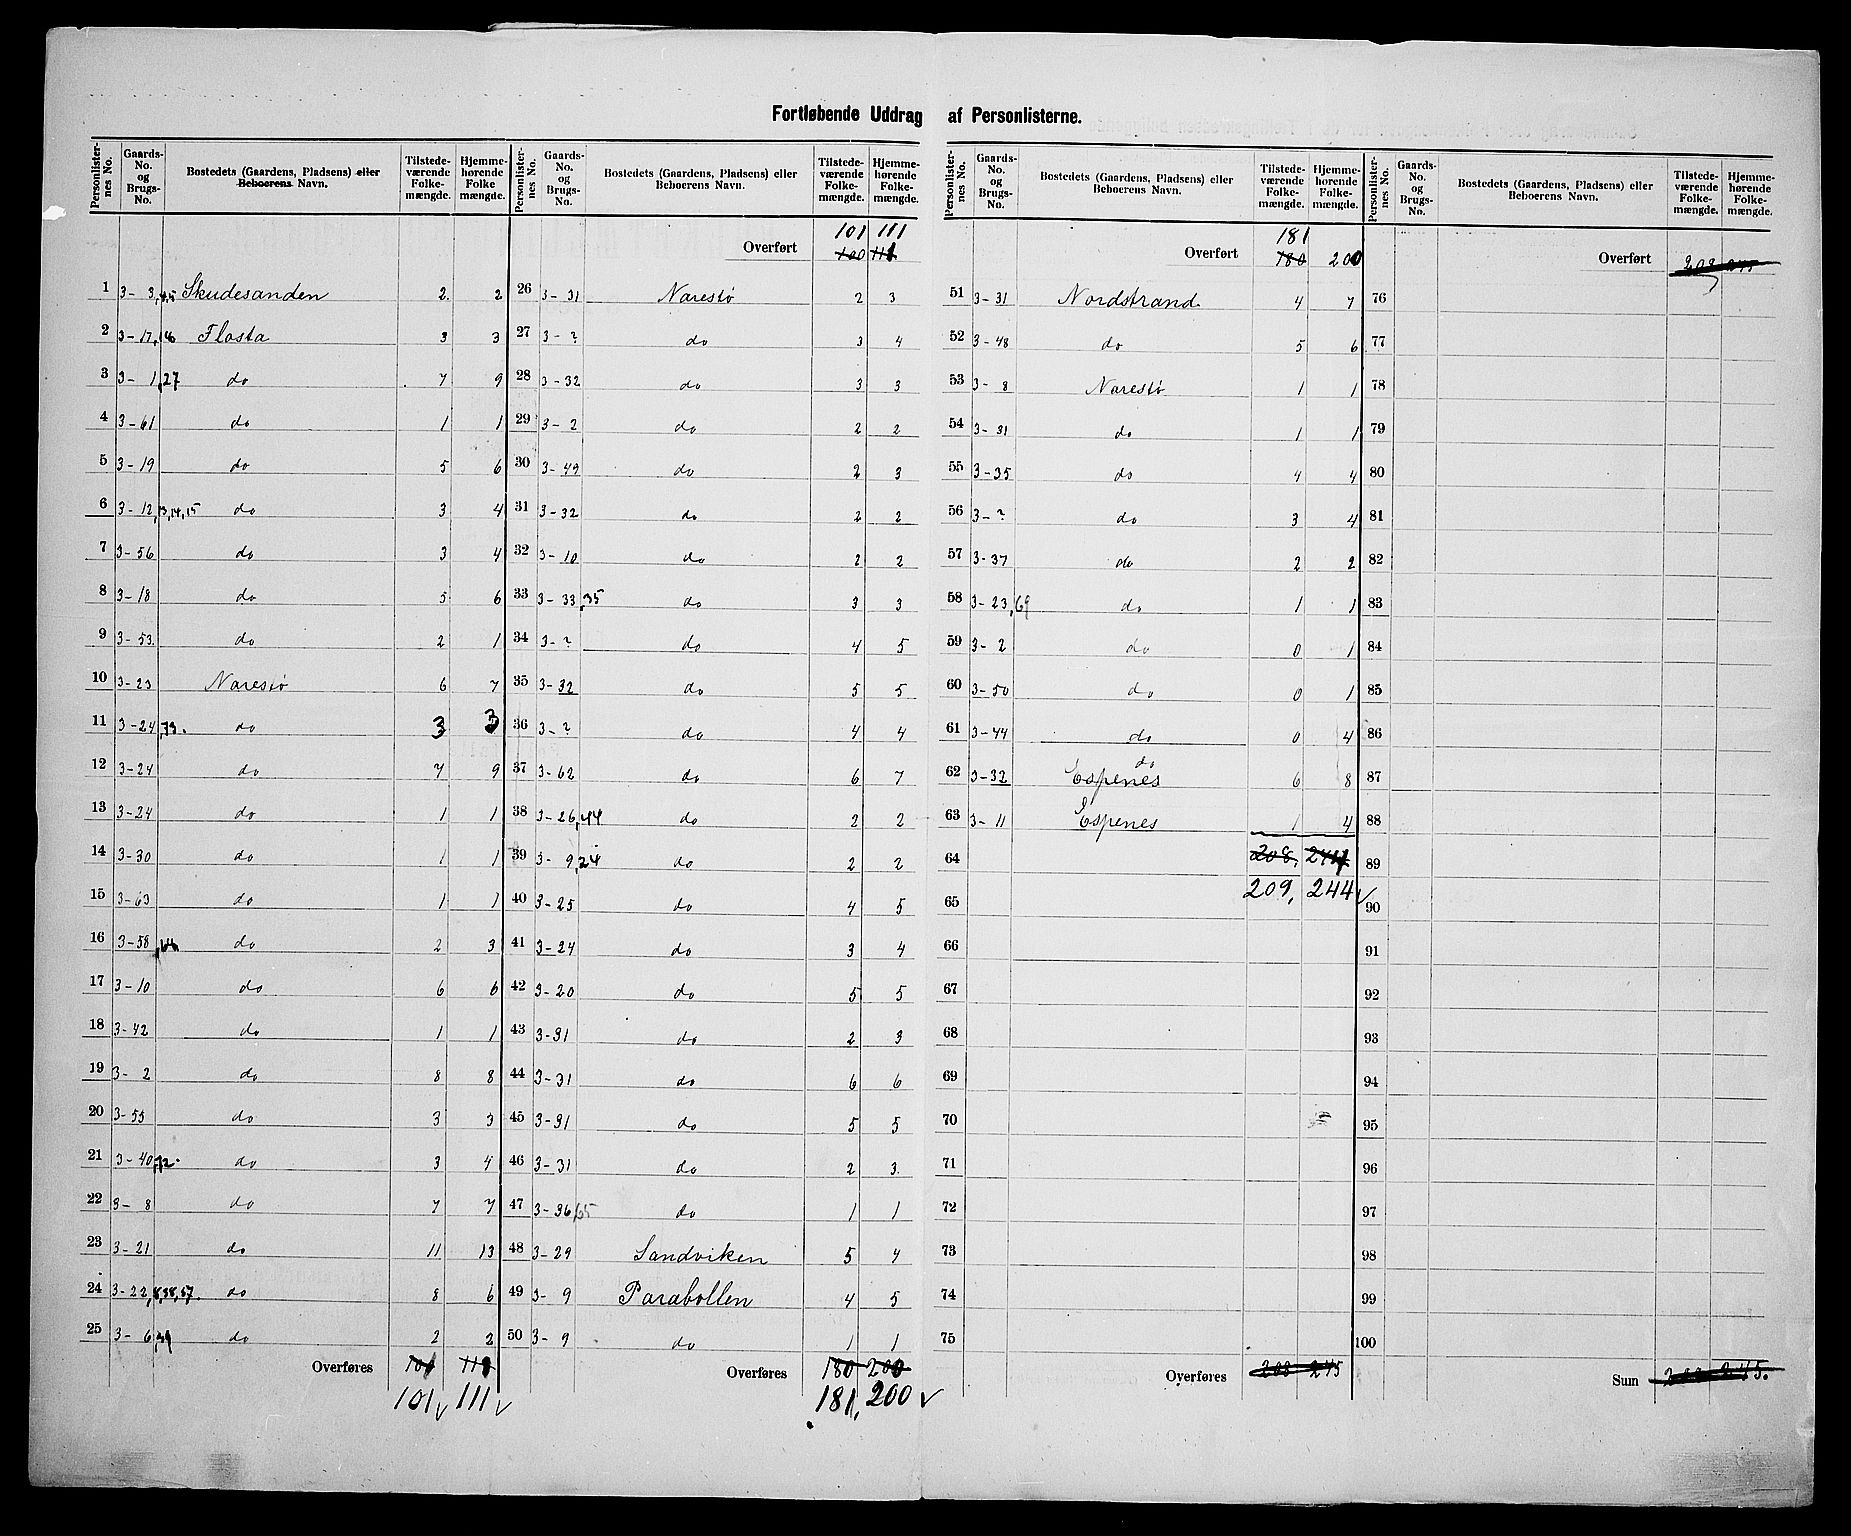 Fortløbende Uddrag af Personlisterne.
Personlister-nes No. | Gaards-No. og Brugs-No. | Bostedets (Gaardens, Pladsens) eller Beboerens Navn. | Tilstede-værende Folke-mængde. | Hjemme-hørende Folke mængde.
1 3-3,4,5 Skudesanden 2 2
2 3-17, Flosta 3 3
3 3-1,27 do 7 9
4 3-61 do 1 1
5 3-19 do 5 6
6 3-12,13,14,15 do 3 4
7 3-56 do 3 4
8 3-18 do 5 6
9 3-53 do 2 1
10 3-23 Narestø 6 7
11 3-24,73. do 3 3
12 3-24 do 7 9
13 3-24 do 1 1
14 3-30 do 1 1
15 3-63 do 1 1
16 3-58, do 2 3
17 3-10 do 6 6
18 3-42 do 1 1
19 3-2 do 8 8
20 3-55 do 3 3
21 3-40,72 do 3 4
22 3-8 do 7 7
23 3-21 do 11 13
24 3-22, 38,57. do 8 6
25 3-6, do 2 2
Overføres
101 111
Personlister-nes No. | Gaards-No. og Brugs-No. | Bostedets (Gaardens, Pladsens) eller Beboerens Navn. | Tilstede-værende Folke-mængde. | Hjemme-hørende Folke-mængde.
101 111
Overført 100
26 3-31 Narestø 2 3
27 3-? do 3 4
28 3-32 do 3 3
29 3-2 do 2 2
30 3-49 do 2 3
31 3-32 do 2 2
32 3-10 do 2 2
33 3-33,35 do 3 3
34 3-? do 4 5
35 3-32 do 5 5
36 3-? do 4 4
37 3-62 do 6 7
38 3-26,44 do 2 2
39 3-9,24 do 2 2
40 3-25 do 4 5
41 3-24 do 3 4
42 3-20 do 5 5
43 3-31 do 2 3
44 3-31 do 6 6
45 3-31 do 5 5
46 3-31 do 2 3
47 3-36,65 do 1 1
48 3-29 Sandviken 5 4
49 3-9 Parabollen 4 5
50 3-9 do 1 1
Overføres 180 200
181, 200
Personlister-nes No. | Gaards-No. og Brugs-No. | Bostedets (Gaardens, Pladsens) eller Beboerens Navn. | Tilstede-værende Folke-mængde. | Hjemme-hørende Folke-mængde.
181
Overført 180 200
51 3-31 Nordstrand 4 7
52 3-48 do 5 6
53 3-8 Narestø 1 1
54 3-31 do 1 1
55 3-35 do 4 4
56 3-? do 3 4
57 3-37 do 2 2
58 3-23,69 do 1 1
59 3-2 do 0 1
60 3-50 do 0 1
61 3-44 do 0 4
do
62 3-32 Espenes 6 8
63 3-11 Espenes 1 4
64 208,
65 209, 244
66
67
68
69
70
71
72
73
74
75
Overføres 208 245
Personlister-nes No. | Gaards-No. og Brugs-No. | Bostedets (Gaardens, Pladsens) eller Beboerens Navn. | Tilstede-værende Folke-mængde. | Hjemme-hørende Folke-mængde.
Overført 208 245
76
77
78
79
80
81
82
83
84
85
86
87
88
89
90
91
92
93
94
95
96
97
98
99
100
Sum 208 245.